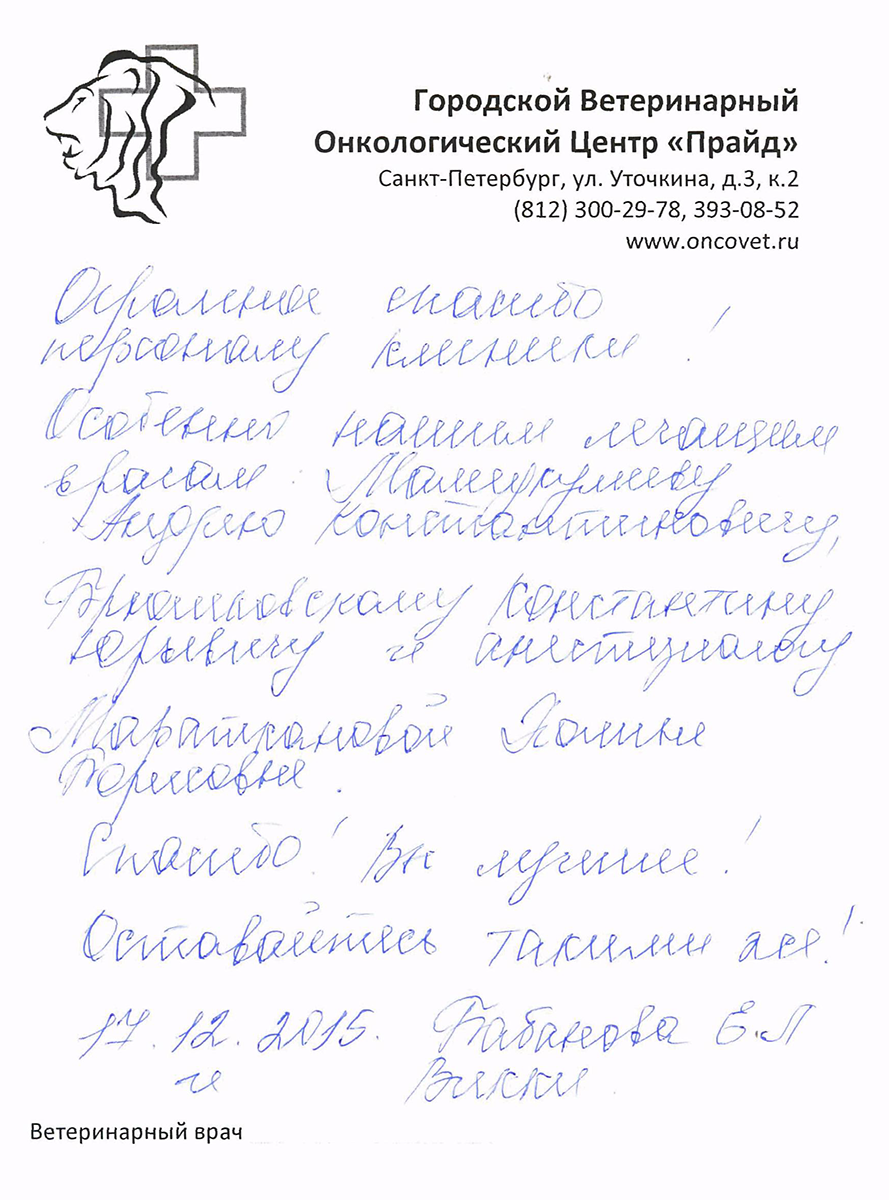 Городской Ветеринарный
Онкологический Центр «Прайд»
Санкт-Петербург, ул. Уточкина, д.3, к.2
(812) 300-29-78, 393-08-52
www.oncovet.ru
Огромное спасибо
персоналу клиники!
Особенно нашим лечащим
врачам:
Андрею Константиновичу,
Константину
Юрьевичу и
Борисовне.
Спасибо! Вы лучшие!
Оставайтесь такими же!
17.12.2015. Бабанова Е.Л
и Викки
Ветеринарный врач